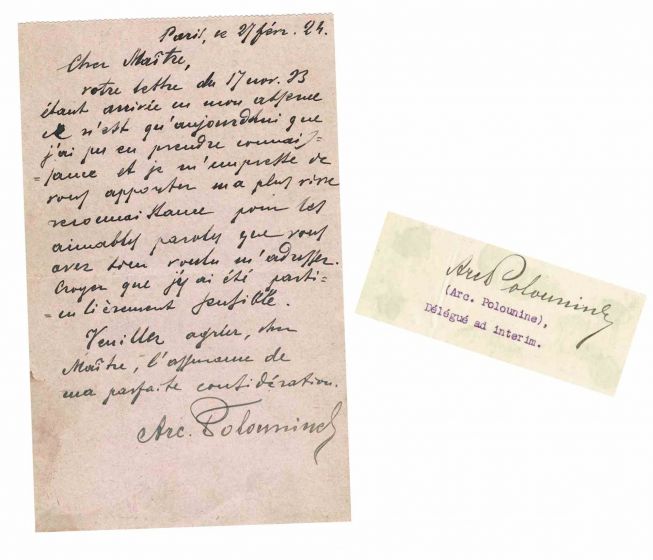 Paris, le 27 févr. 24.
Cher Maître,
votre lettre du 17 nov. 23
étant arrivée en mon absence
ce n'est qu'aujourdhui que
j'ai pu en prendre connais-
=sance et je m'empresse de
vous apporter ma plus vive
reconnaissance pour les
aimables paroles que vous
avez bien voulu m'adresser.
Croyez que j'y ai été parti-
culièrement sensible.
Veuillez agréer, cher
Maître, l'assurance de
ma parfaite considération.
Arc. Polounine
Arc. Polounine
(Arc. Polounine),
Délégué ad interim.